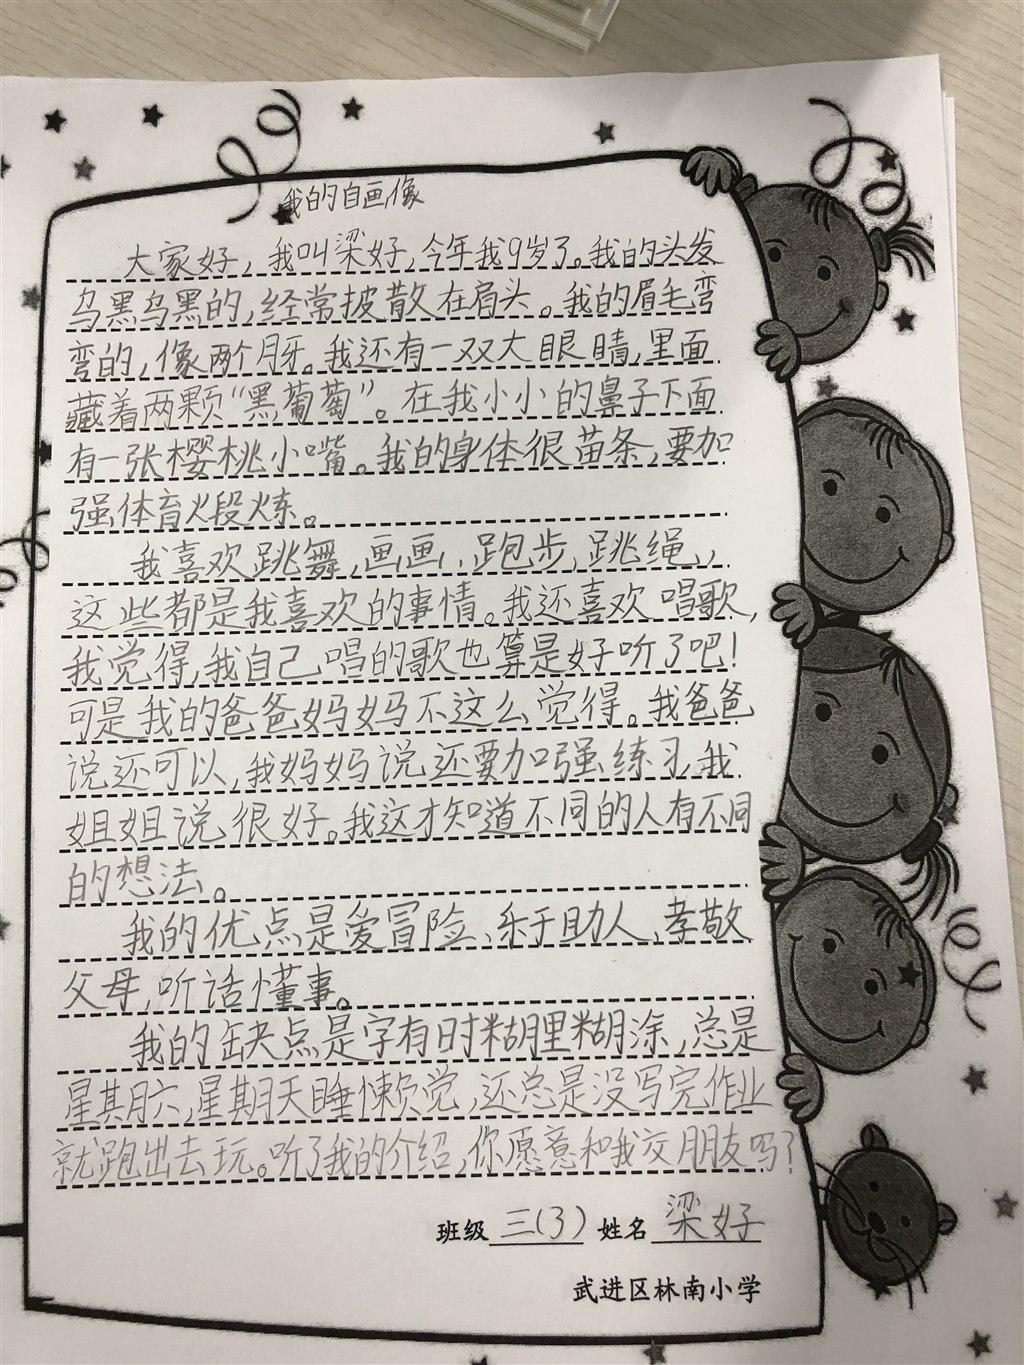 我的自画像
大家好，我叫梁好，今年我9岁了。我的头发
乌黑乌黑的，经常披散在肩头。我的眉毛弯
弯的，像两个月牙。我还有一双大眼睛，里面
藏着两颗“黑葡萄”。在我小小的鼻子下面
有一张樱桃小嘴。我的身体很苗条，要加
强体育火段火炼。
我喜欢跳舞，画画，跑步，跳绳，
这些都是我喜欢的事情。我还喜欢唱歌，
我觉得，我自己唱的歌也算是好听了吧！
可是我的爸爸妈妈不这么觉得。我爸爸
说还可以，我妈妈说还要加强练习，我
姐姐说很好。我这才知道不同的人有不同
的想法。
我的优点是爱冒险，乐于助人，孝敬
父母，听话懂事。
我的缺点是字有时糊里糊涂，总是
星期六，星期天睡懒觉，还总是没写完作业
就跑出去玩。听了我的介绍，你愿意和我交朋友吗？
班级三(3) 姓名梁好
武进区林南小学